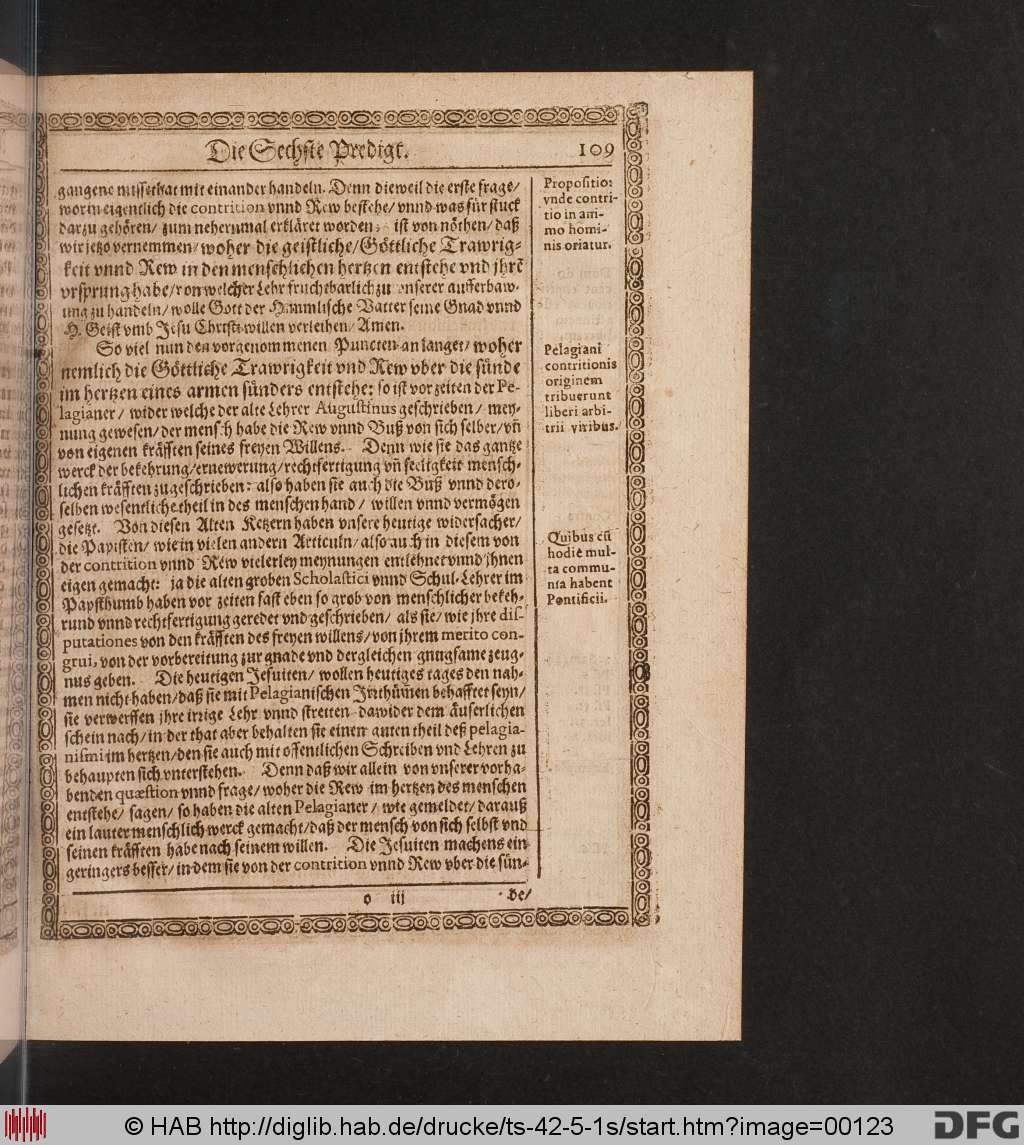 Die Sechste Predigt. 109
gangene missethat mit einander handeln. Denn dieweil die erste frage/
worin eigentlich die contrition vnnd Rew bestehe/ vnnd was für stuck
darzu gehören/ zum nehernmal erkläret worden, ist von nöthen/ daß
wir jetzo vernemmen/ woher die geistliche/ Göttliche Trawrig-
keit vnnd Rew in den menschlichen hertzen entstehe vnd jhrē
vrsprung habe/ von welcher Lehr fruchtbarlich zu vnserer aufferbaw-
ung zu handeln/ wolle Gott der Himmlische Vatter seine Gnad vnnd
H. Geist vmb Jesu Christi willen verleihen/ Amen.
So viel nun den vorgenommenen Puncten anlanget/ woher
nemlich die Göttliche Trawrigkeit vnd Rew vber die sünde
im hertzen eines armen sünders entstehe: so ist vor zeiten der Pe-
lagianer/ wider welche der alte Lehrer Augustinus geschrieben/ mey-
nung gewesen/ der mensch habe die Rew vnnd Buß von sich selber/ vn̄
von eigenen kräfften seines freyen Willens. Denn wie sie das gantze
werck der bekehrung/ ernewerung/ rechtfertigung vn̄ seeligkeit mensch-
lichen kräfften zugeschrieben: also haben sie auch die Buß vnnd dero-
selben wesentliche theil in des menschen hand/ willen vnnd vermögen
gesetzt. Von diesen Alten Ketzern haben vnsere heutige widersacher/
die Papisten/ wie in vielen andern Articuln/ also auch in diesem von
der contrition vnnd Rew vielerley meynungen entlehnet vnnd jhnen
eigen gemacht: ja die alten groben Scholastici vnnd Schul-Lehrer im
Papsthumb haben vor zeiten fast eben so grob von menschlicher bekeh-
rund vnnd rechtfertigung geredet vnd geschrieben/ als sie/ wie jhre dis-
putationes von den kräfften des freyen willens/ von jhrem merito con-
grui, von der vorbereitung zur gnade vnd dergleichen gnugsame zeug-
nus geben. Die heutigen Jesuiten/ wollen heutiges tages den nah-
men nicht haben/ daß sie mit Pelagianischen Irrthümen behafftet seyn/
sie verwerffen jhre irrige Lehr vnnd streiten dawider dem äuserlichen
schein nach/ in der that aber behalten sie einen guten theil deß pelagia-
nismi im hertzen/ den sie auch mit offentlichen Schreiben vnd Lehren zu
behaupten sich vnterstehen. Denn daß wir allein von vnserer vorha-
benden quæstion vnnd frage/ woher die Rew im hertzen des menschen
entstehe/ sagen/ so haben die alten Pelagianer/ wie gemeldet/ darauß
ein lauter menschlich werck gemacht/ daß der mensch von sich selbst vnd
seinen kräfften habe nach seinem willen. Die Jesuiten machens ein
geringers besser/ in dem sie von der contrition vnnd Rew vber die sün-
o iij de/
Propositio:
vnde contri-
tio in ani-
mo homi-
nis oriatur.
Pelagiani
contritionis
originem
tribuerunt
liberi arbi-
trii viribus.
Quibus cū
hodiè mul-
ta commu-
nia habent
Pontificii.
© HAB http://diglib.hab.de/drucke/ts-42-5-1s/start.htm?image=00123
DFG